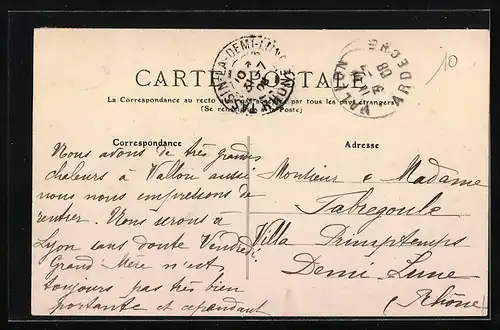 10
CARTE POSTALE
La Correspondance au recto par tous les pays étrangers
(Se à la Poste)
TASSIN-LA-DEMI-LUNE
RHONE
VALLON
ARDECHE
Correspondance
Nous avons de très grandes
chaleurs à Vallon aussi
nous nous empressons de
rentrer. Nous serons à
Lyon sans doute Vendredi.
Grand'Mère n'est
toujours pas très bien
portante et cependant
Adresse
Monsieur & Madame
Fabregoule
Villa Primptemps
Demi-Lune
(Rhône)